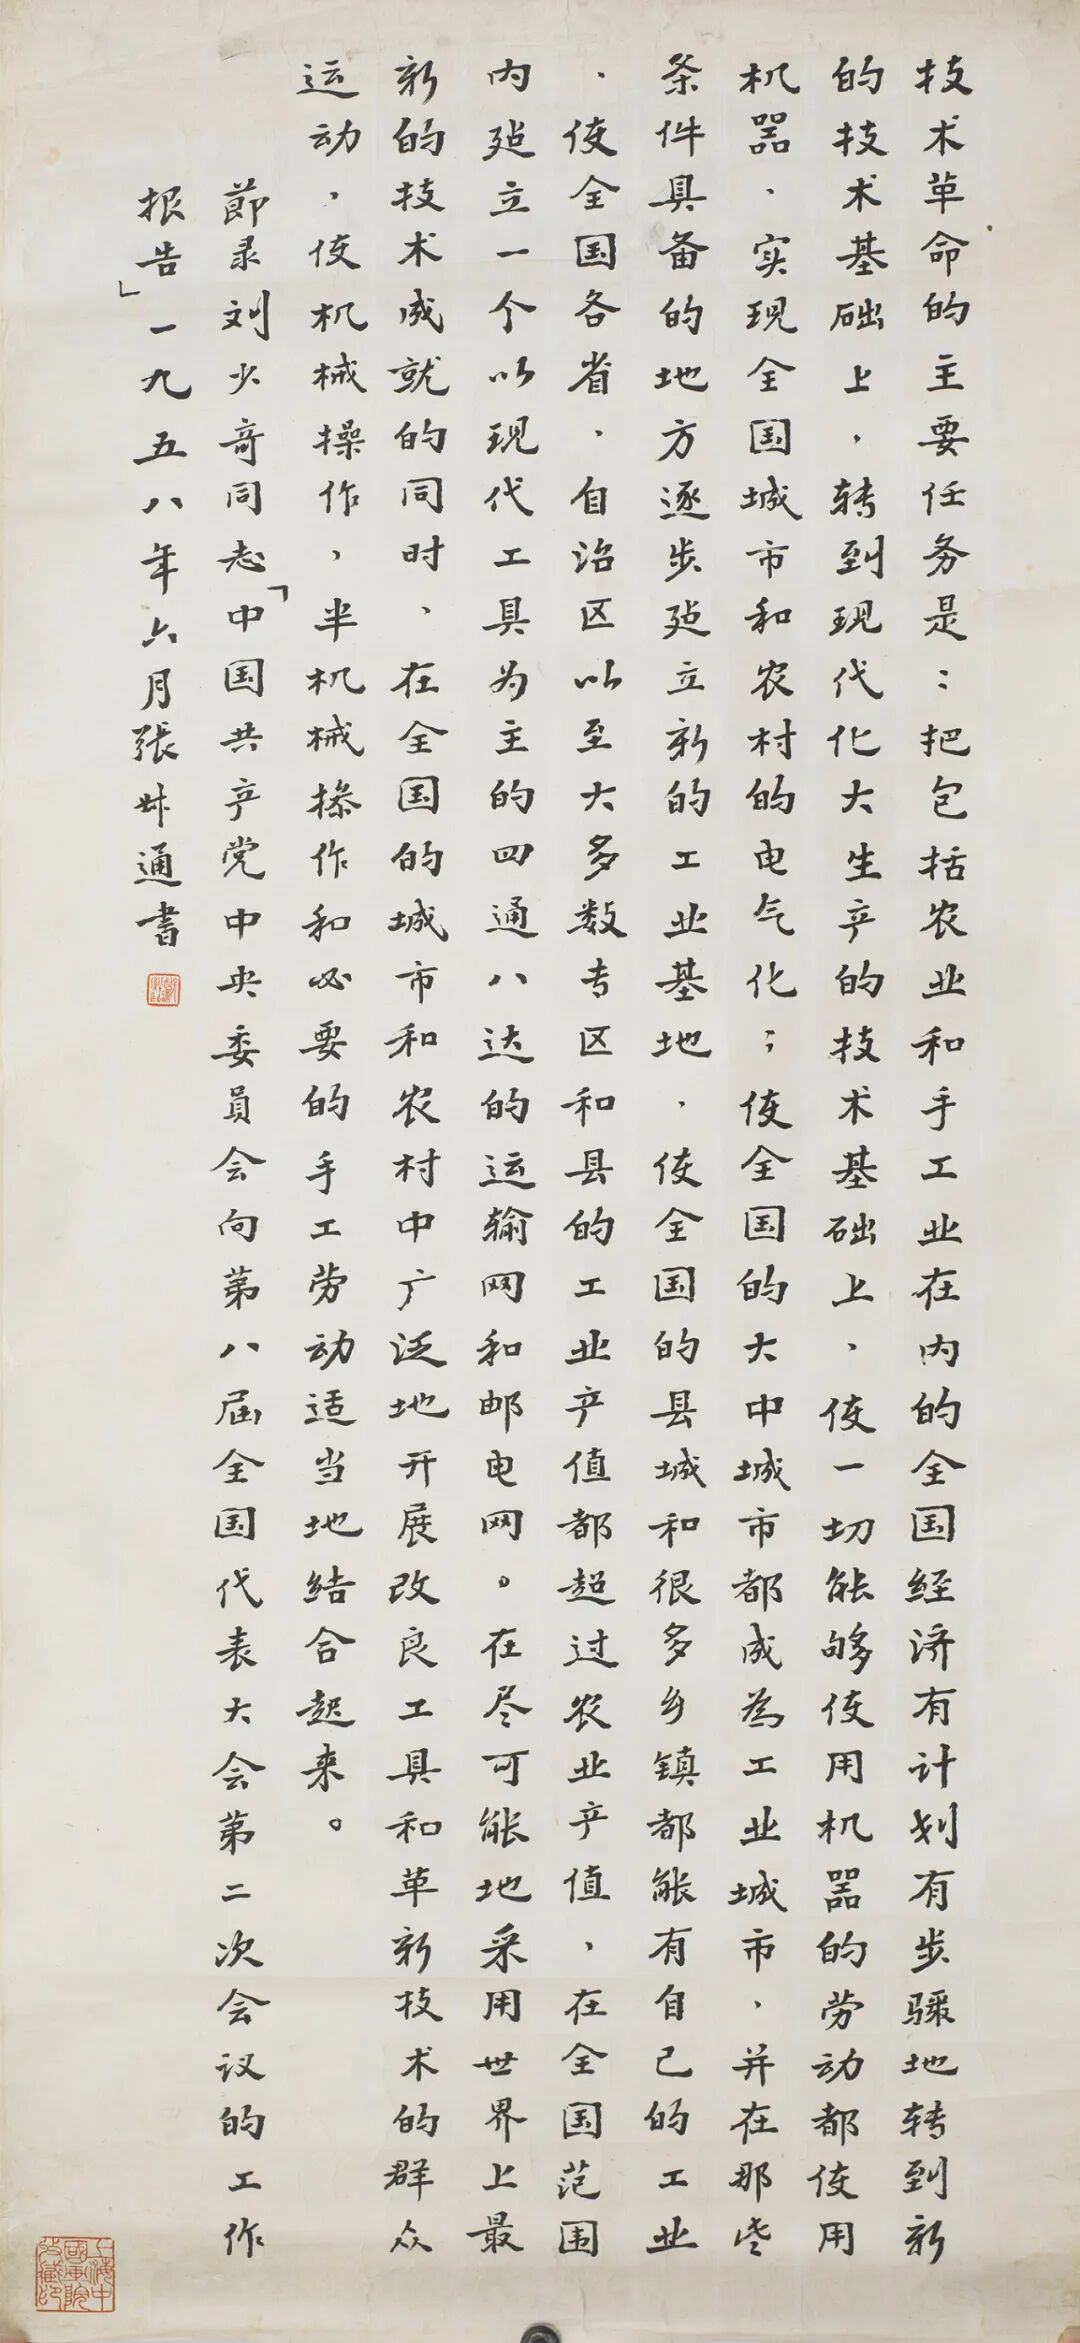 技术革命的主要任务是：把包括农业和手工业在内的全国经济有计划有步骤地转到新
的技术基础上，转到现代化大生产的技术基础上、使一切能够使用机器的劳动都使用
机器、实现全国城市和农村的电气化；使全国的大中城市都成為工业城市、并在那些
条件具备的地方逐步建立新的工业基地、使全国的县城和很多乡镇都能有自己的工业
、使全国各省、自治区以至大多数专区和县的工业产值都超过农业产值，在全国范围
内建立一个以现代工具为主的四通八达的运输网和邮电网。在尽可能地采用世界上最
新的技术成就的同时、在全国的城市和农村中广泛地开展改良工具和革新技术的群众
运动，使机械操作，半机械操作和必要的手工劳动适当地结合起来。
節录刘少奇同志「中国共产党中央委員会向第八届全国代表大会第二次会议的工作
报告」一九五八年六月張叔通書
上海中
國畫院
收藏印